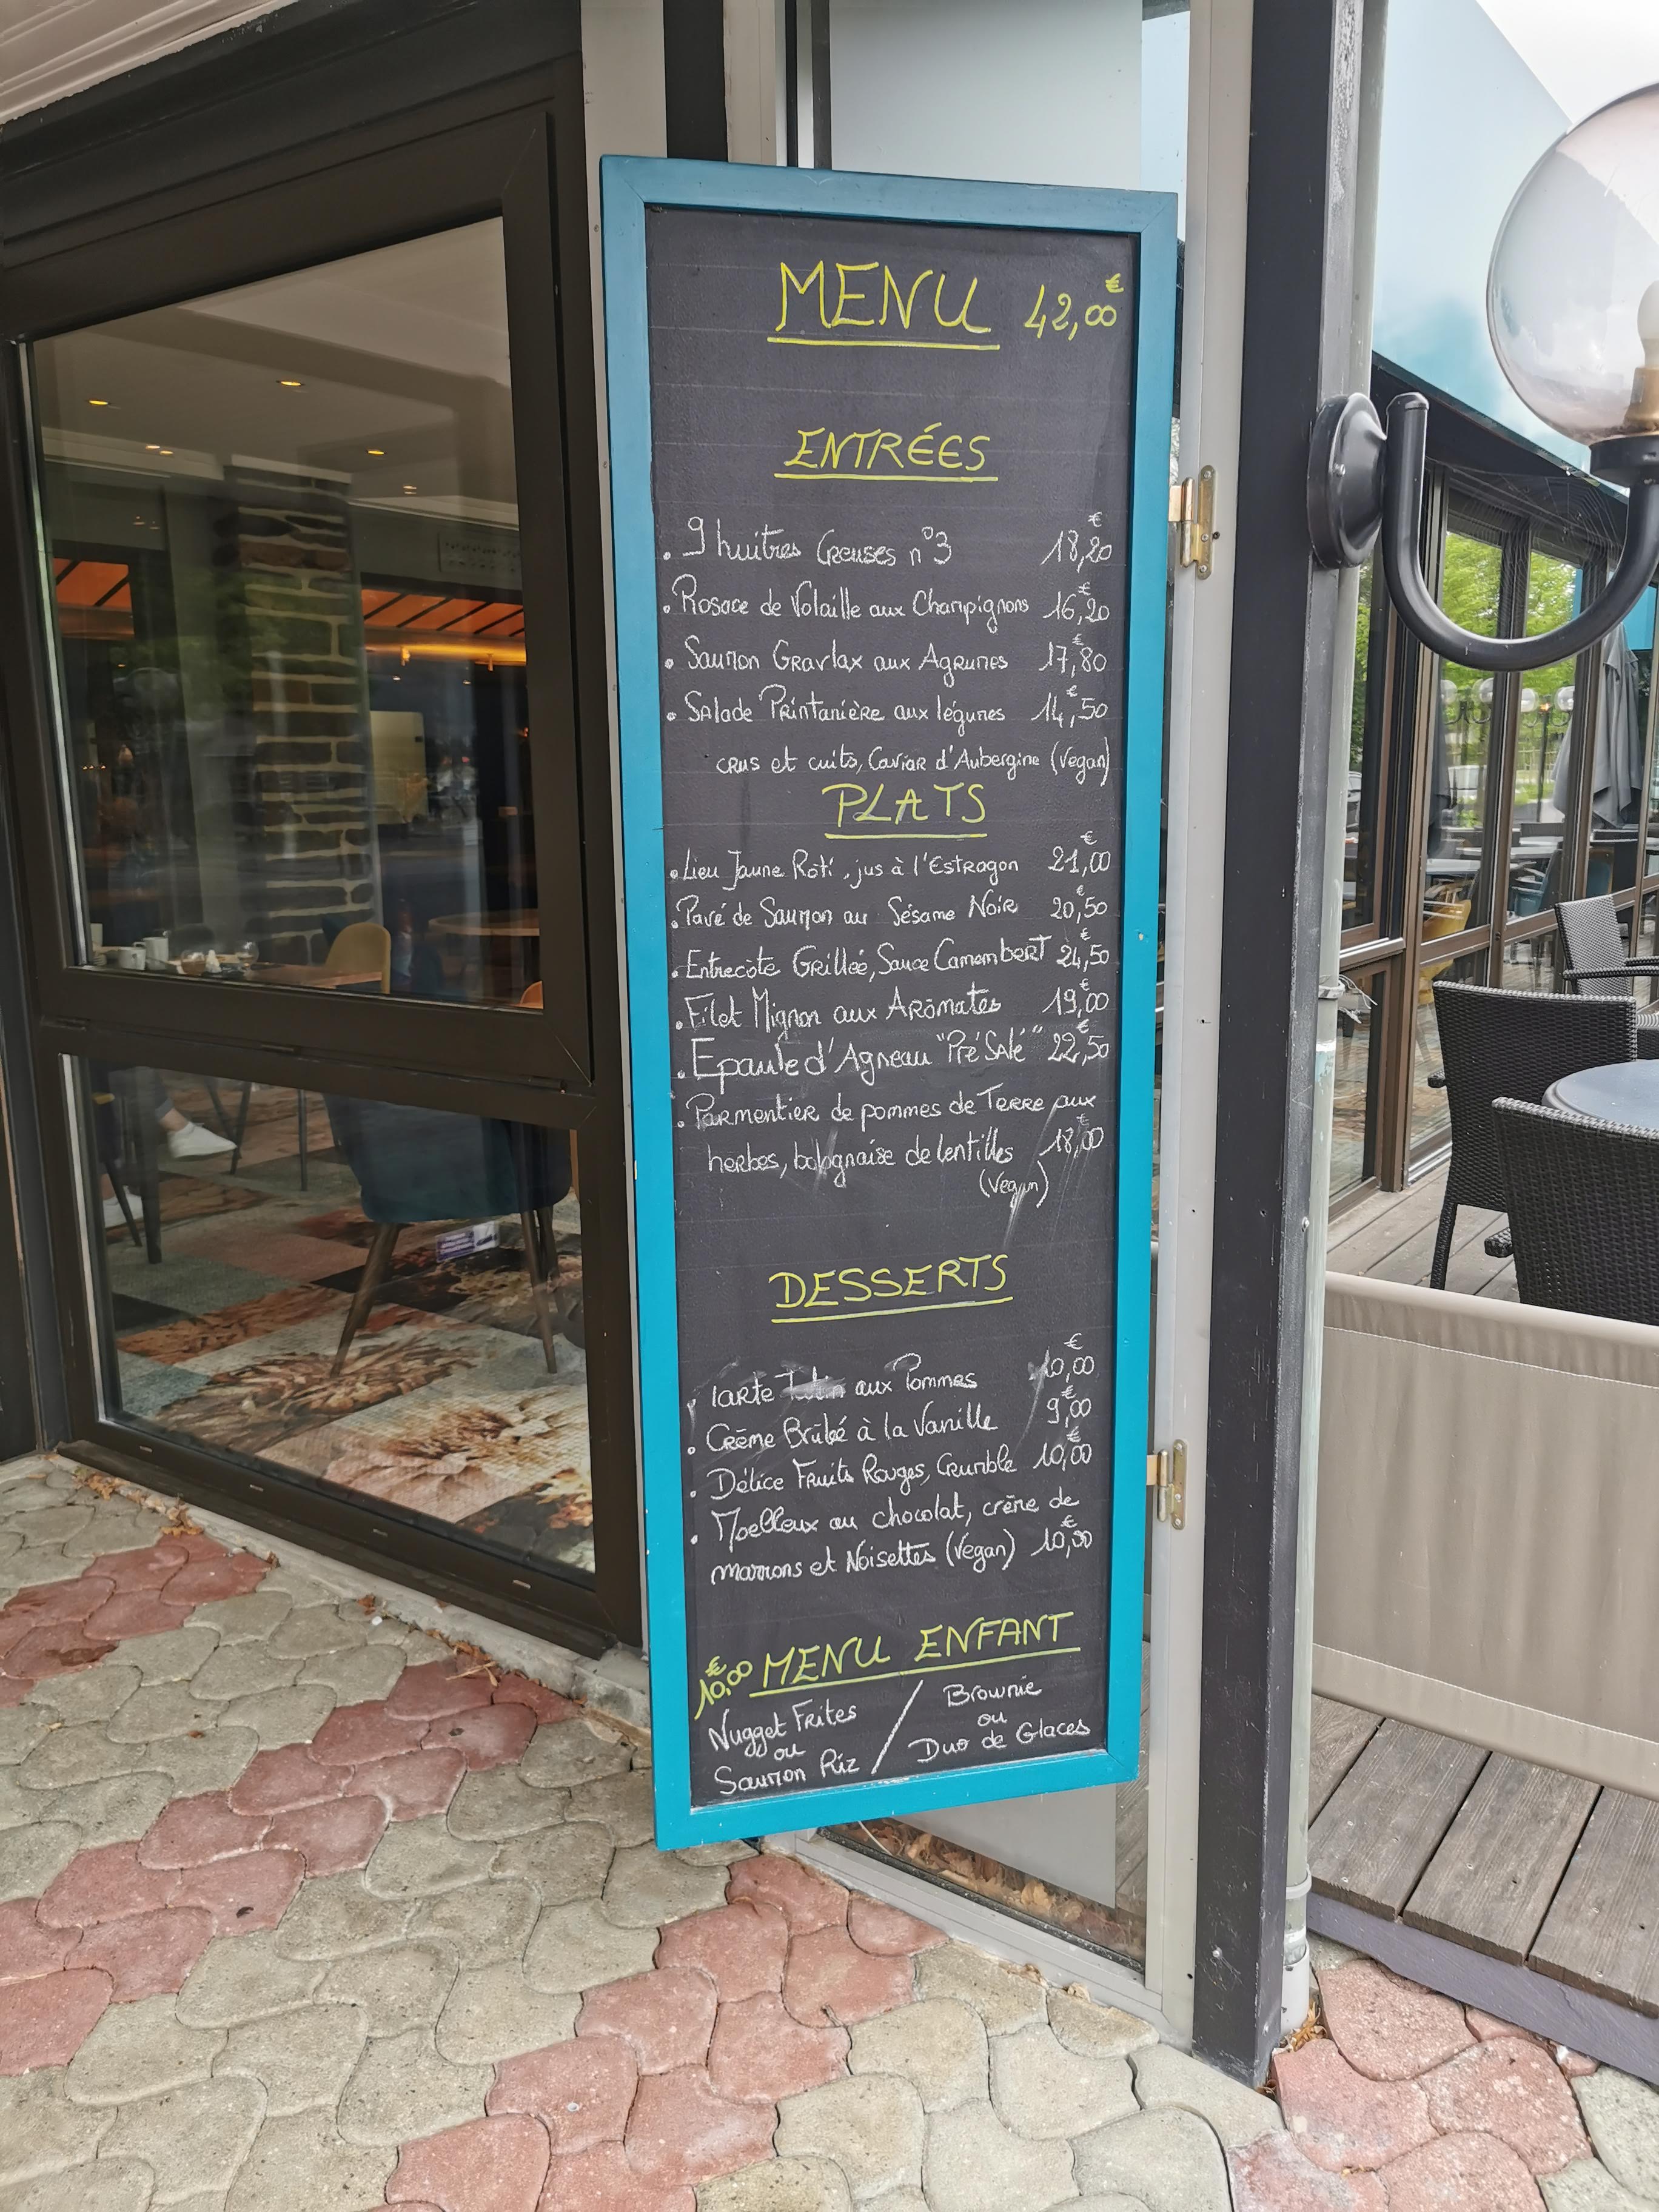 MENU 42,00€
ENTRÉES
. 9 huitres Creuses n°3 18,20€
. Rosace de Volaille aux Champignons 16,20€
. Saumon Gravlax aux Agrumes 17,80€
. Salade Printanière aux légumes 14,50€
crus et cuits, Caviar d'Aubergine (Vegan)
PLATS
. Lieu Jaune Rôti, jus à l'Estragon 21,00€
. Pavé de Saumon au Sésame Noir 20,50€
. Entrecôte Grillée, Sauce Camembert 24,50€
. Filet Mignon aux Arômates 19,00€
. Epaule d'Agneau "Pré Salé" 22,50€
. Parmentier de pommes de Terre aux
herbes, bolognaise de lentilles 18,00€
(Vegan)
DESSERTS
. Tarte aux Pommes 10,00€
. Crème Brûlée à la Vanille 9,00€
. Délice Fruits Rouges, Crumble 10,00€
. Moelleux au chocolat, crème de
marrons et Noisettes (Végan) 10,00€
10,00€ MENU ENFANT
Nugget Frites / Brownie
ou ou
Saumon Riz Duo de Glaces